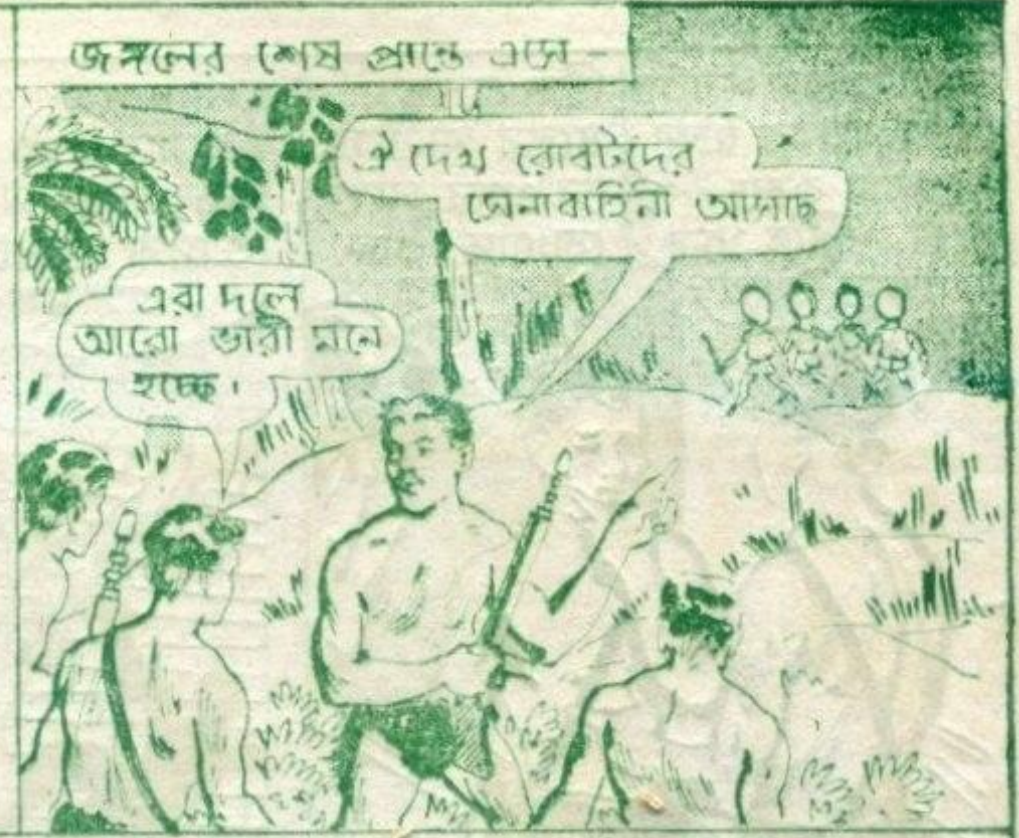 জঙ্গলের শেষ প্রান্তে এসে –
ঐ দেখ রোবটদের
সেনাবাহিনী আসছে
এরা দলে
আরো ভারী মনে
হচ্ছে।